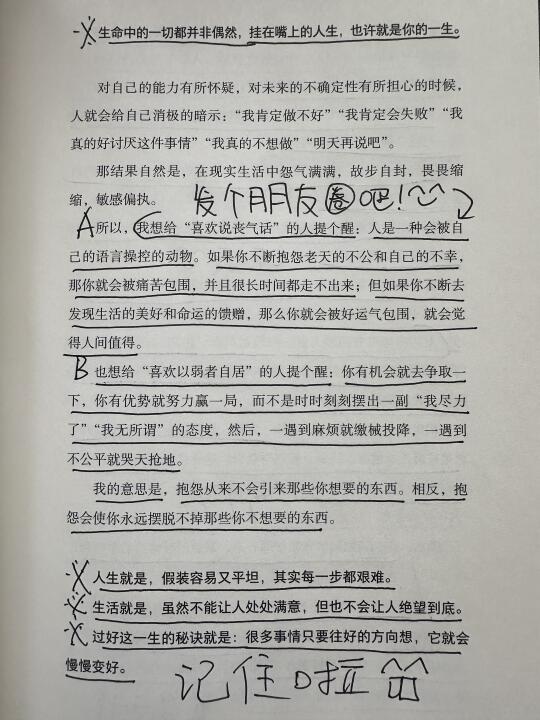 生命中的一切都并非偶然，挂在嘴上的人生，也许就是你的一生。
对自己的能力有所怀疑，对未来的不确定性有所担心的时候，
人就会给自己消极的暗示：“我肯定做不好”“我肯定会失败”“我
真的好讨厌这件事情”“我真的不想做”“明天再说吧”。
那结果自然是，在现实生活中怨气满满，故步自封，畏畏缩
缩，敏感偏执。
发个朋友圈吧！
A所以，我想给“喜欢说丧气话”的人提个醒：人是一种会被自
己的语言操控的动物。如果你不断抱怨老天的不公和自己的不幸，
那你就会被痛苦包围，并且很长时间都走不出来；但如果你不断去
发现生活的美好和命运的馈赠，那么你就会被好运气包围，就会觉
得人间值得。
B 也想给“喜欢以弱者自居”的人提个醒：你有机会就去争取一
下，你有优势就努力赢一局，而不是时时刻刻摆出一副“我尽力
了”“我无所谓”的态度，然后，一遇到麻烦就缴械投降，一遇到
不公平就哭天抢地。
我的意思是，抱怨从来不会引来那些你想要的东西。相反，抱
怨会使你永远摆脱不掉那些你不想要的东西。
人生就是，假装容易又平坦，其实每一步都艰难。
生活就是，虽然不能让人处处满意，但也不会让人绝望到底。
过好这一生的秘诀就是：很多事情只要往好的方向想，它就会
慢慢变好。
记住啦